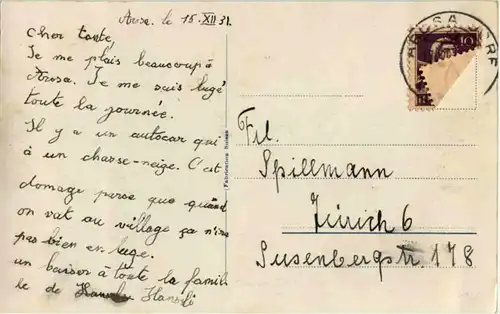 Arosa. le 15. XII 31.
Cher tante,
Je me plais beaucoup à
Arosa. Je me suis lugé
toute la journée.
Il y a un autocar qui
à un chasse-neige. C'est
domage parse que quand
on vat au village ça n'ira
pas bien en luge.
un baiser à toute la famil
le de Hansli
Fabrication Suisse
AROSA DORF
10
Frl.
Spillmann
Zürich 6
Susenbergstr. 178